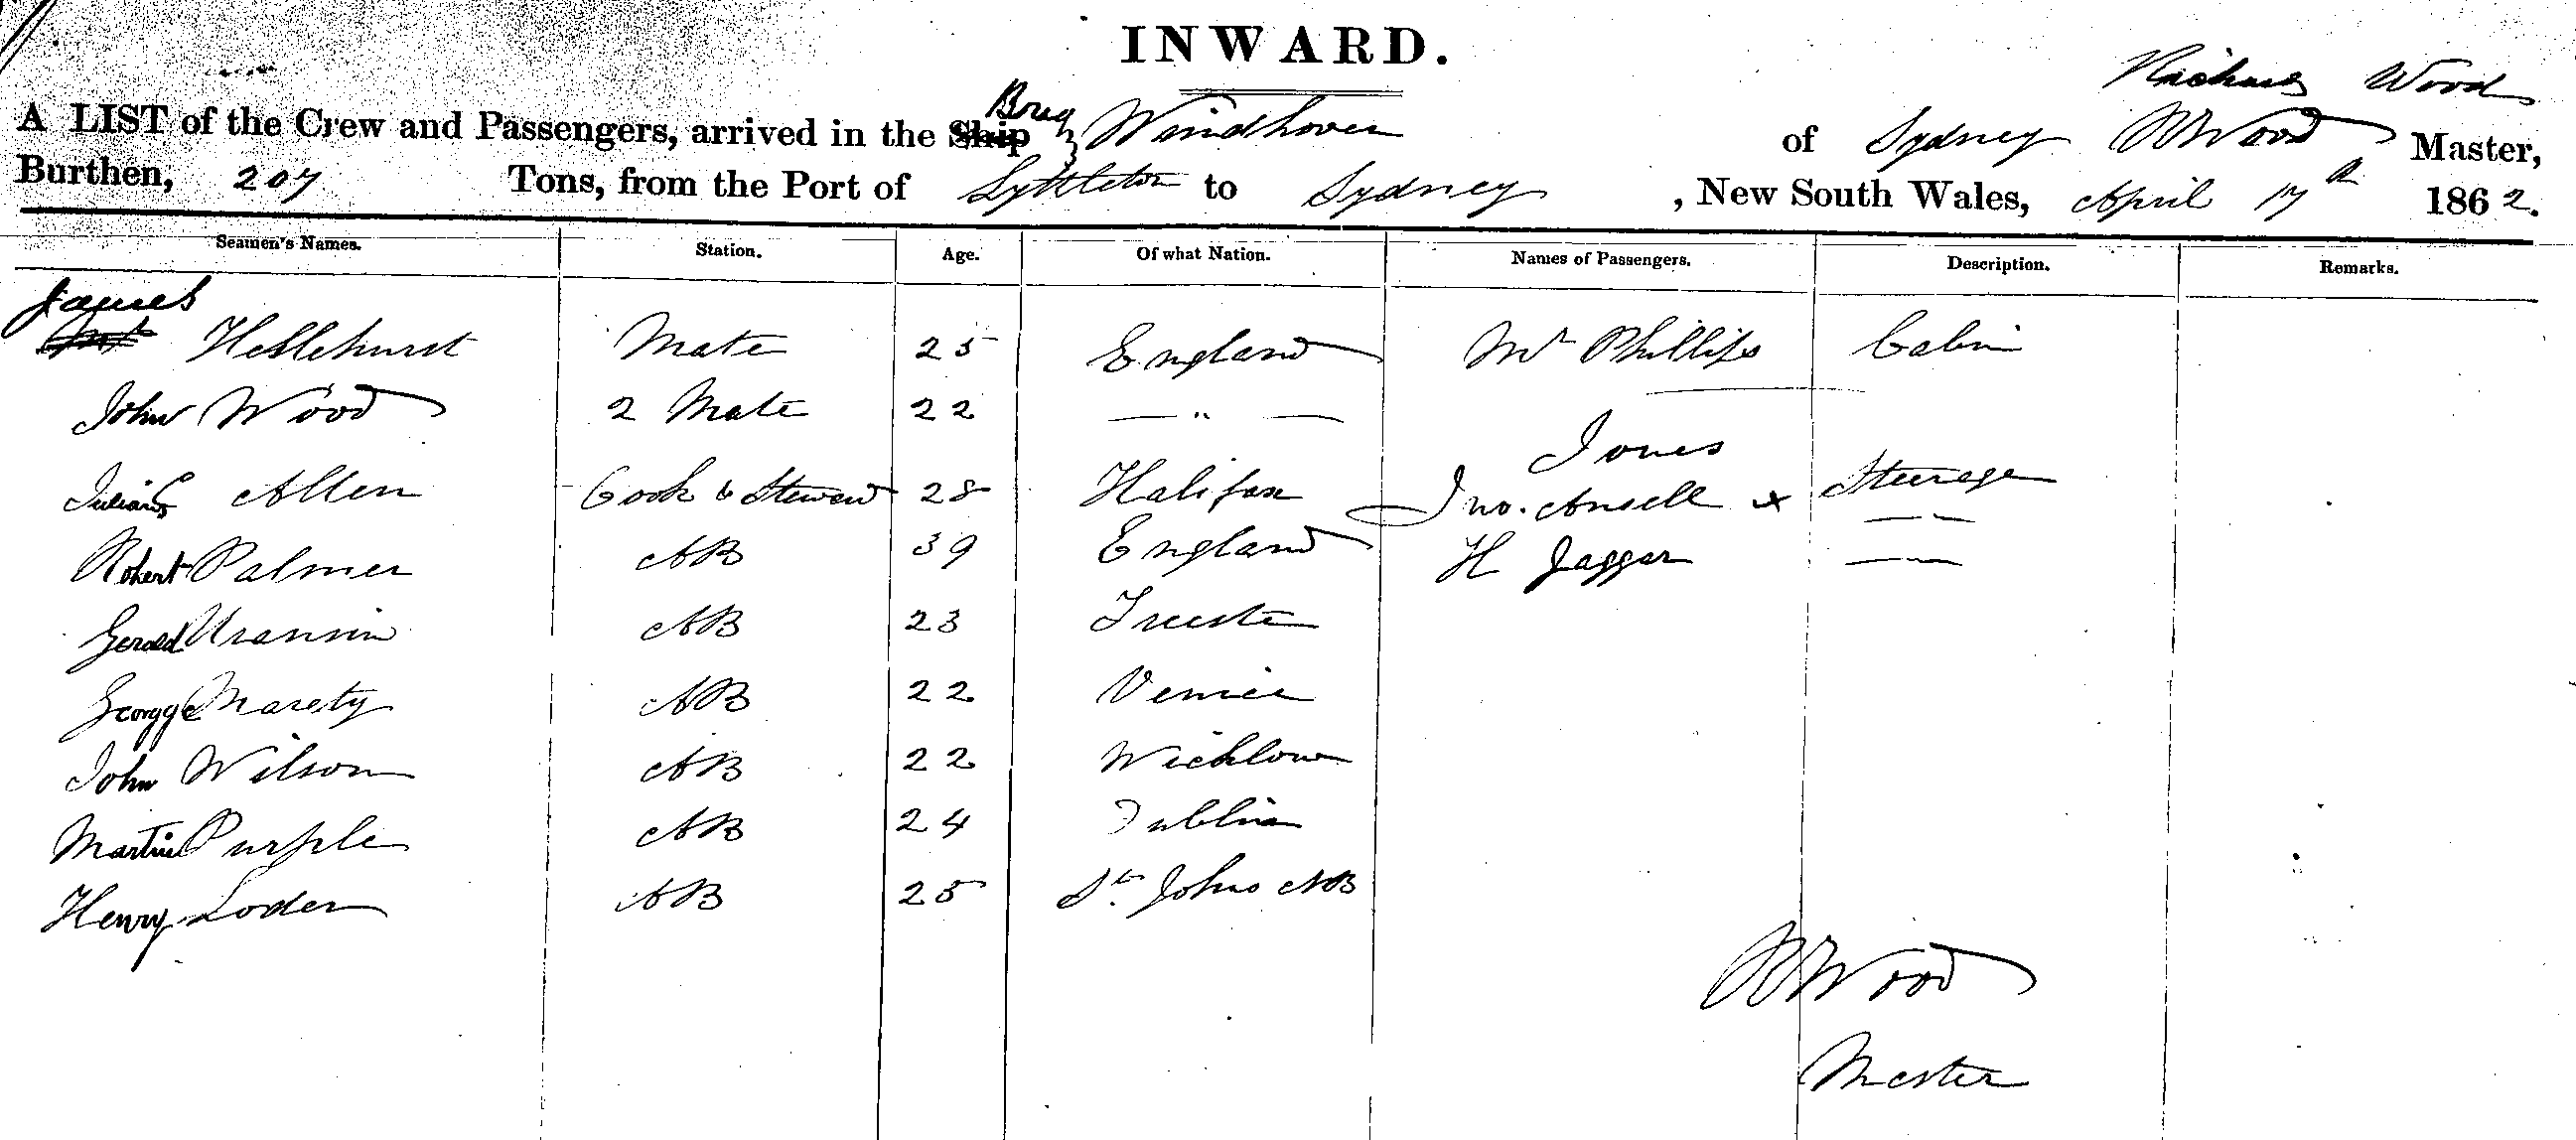 INWARD.
Richard Wood
Brig
A LIST of the Crew and Passengers, arrived in the Ship Windhover of Sydney R Wood Master,
Burthen, 207 Tons, from the Port of Lyttleton to Sydney , New South Wales, April 17th 1862.
Seamen's Names. Station. Age. Of what Nation. Names of Passengers. Description. Remarks.
James
Hesslehurst Mate 25 England Mr Phillips Cabin
John Wood 2 Mate 22 — " —
Jones
Allen Cook & Steward 28 Halifax Jno. Ansell x Steerage
Robert Palmer AB 39 England H Jaggar — " —
Gerald Uransin AB 23 Trieste
George Marety AB 22 Venice
John Wilson AB 22 Wicklow
Martin Purple AB 24 Dublin
Henry Loder AB 25 St. Johns NB
R Wood
Master